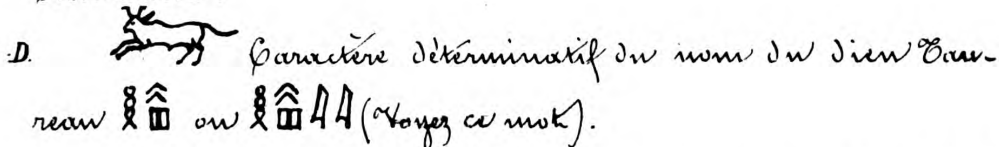 D. Caractère déterminatif du nom du dieu Tau-
reau ou (Voyez ce mot).